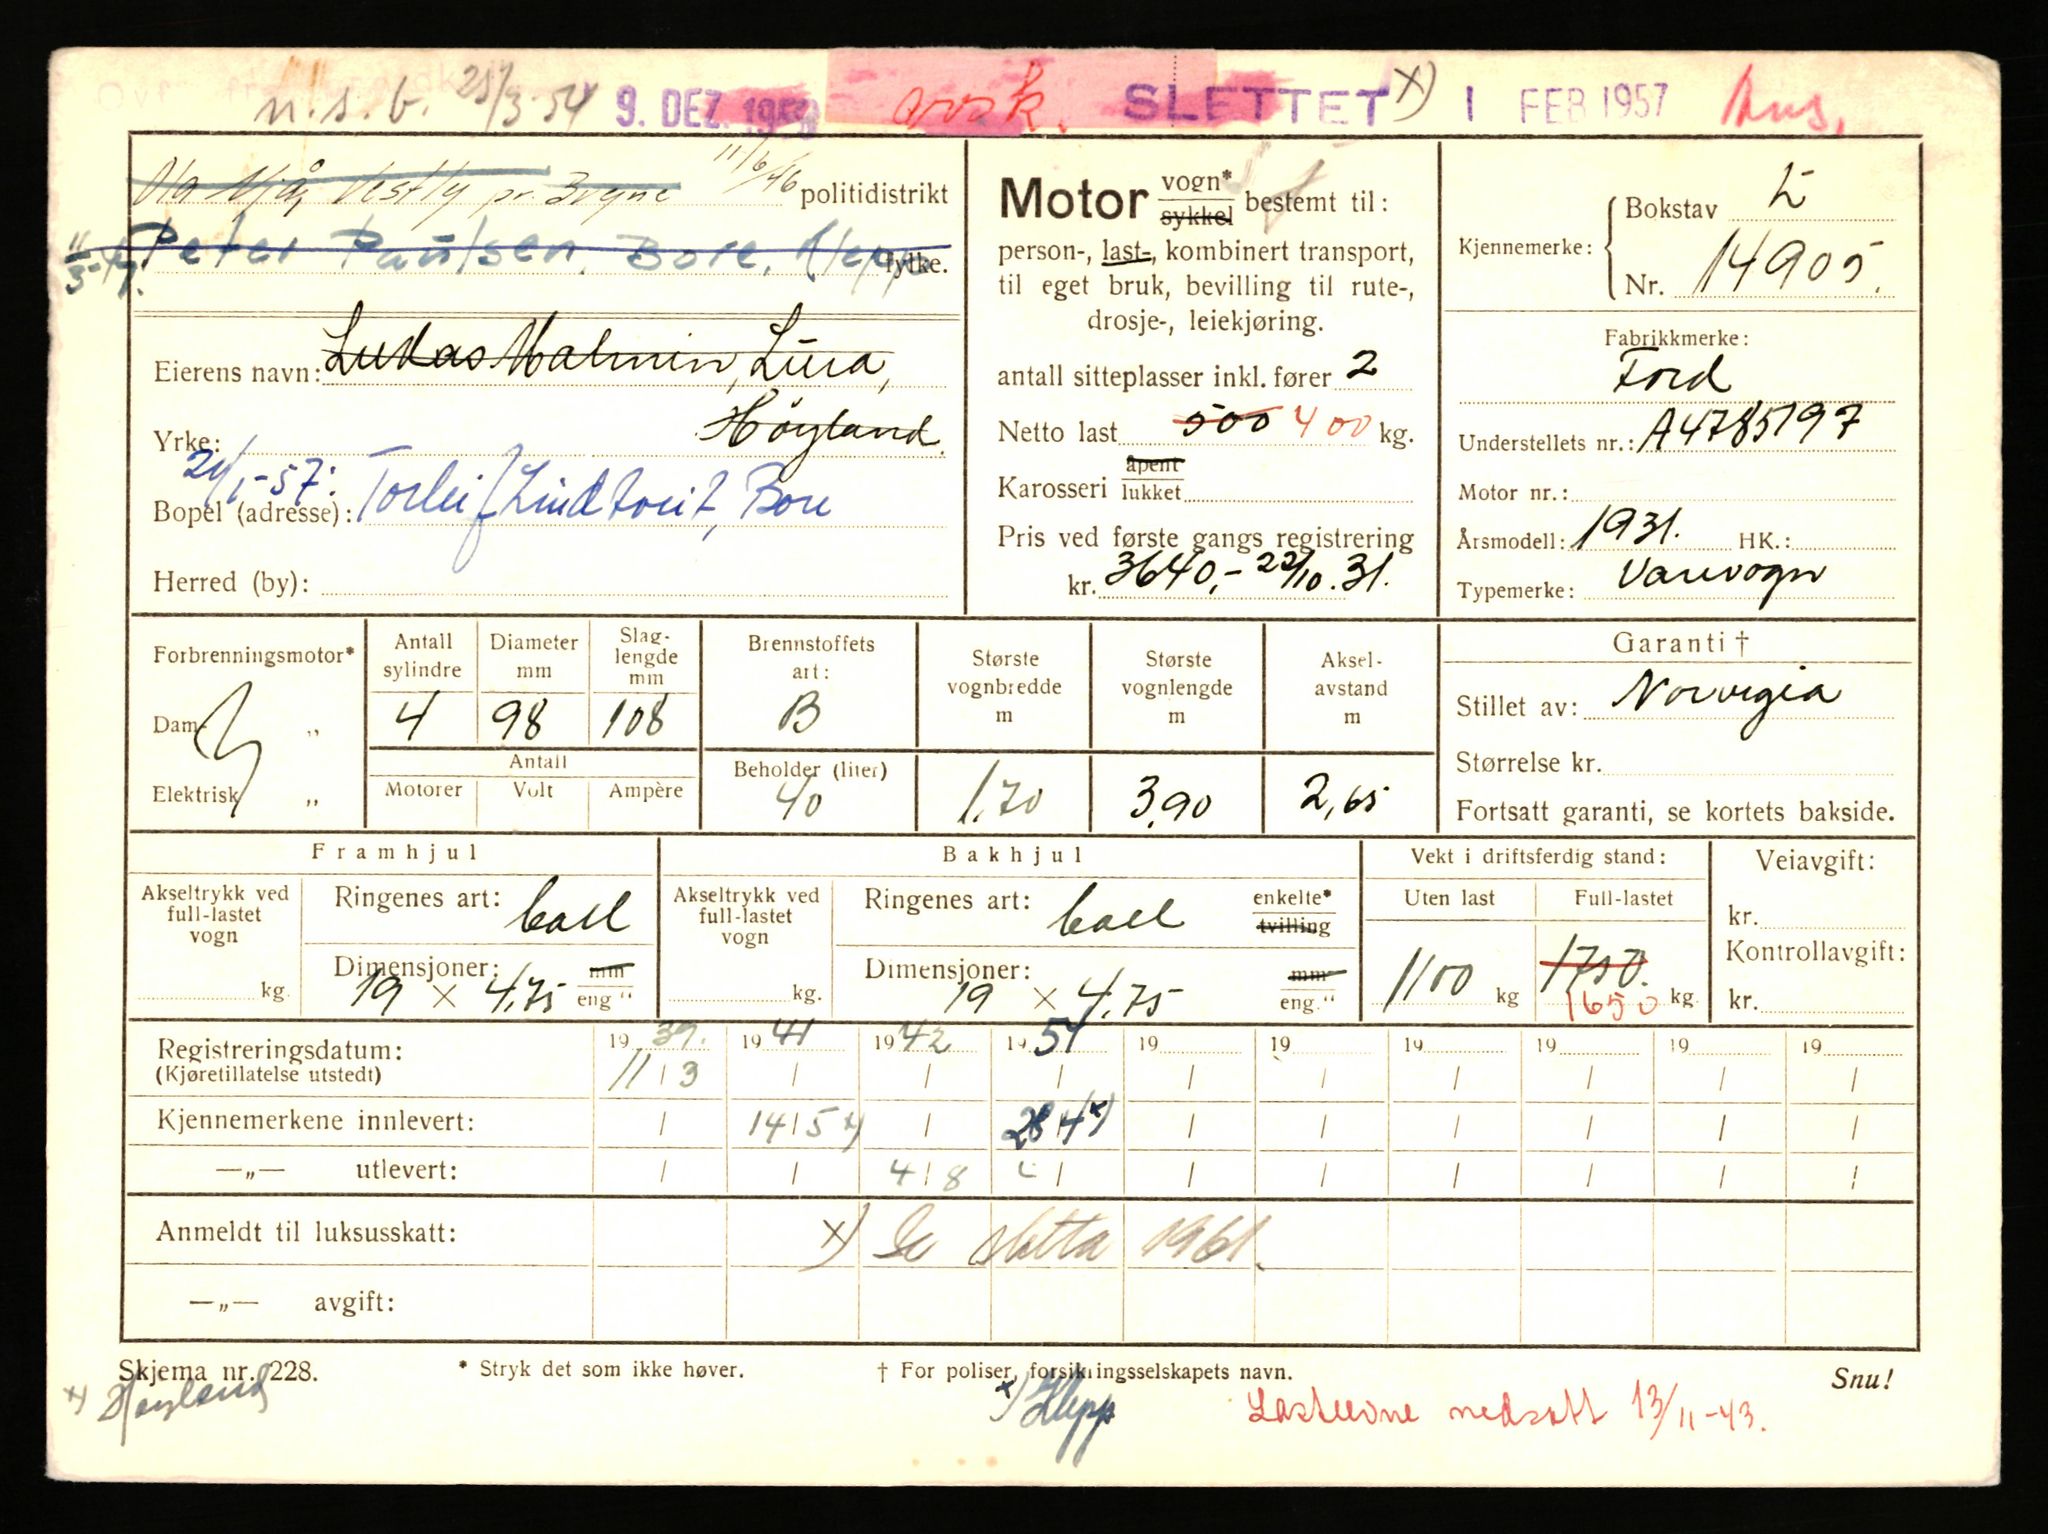 n.s.b. 25/3-54 9. DEZ. 1953 avsk. SLETTET x) 1 FEB 1957 Aus.
Ola Mjåj Vestly pr. Bryne 11/6/46 politidistrikt
11/3-47. Peter Paulsen, Bore, Klepp fylke.
Eierens navn: Lukas Malmin, Lura,
Yrke: Høyland.
21/1-57:
Bopel (adresse): Torleif Lindtveit, Bore
Herred (by):
Motor vogn* sykkel bestemt til:
person-, last-, kombinert transport,
til eget bruk, bevilling til rute-,
drosje-, leiekjøring.
antall sitteplasser inkl. fører 2
Netto last 500 400 kg.
Karosseri åpent lukket
Pris ved første gangs registrering
kr. 3640,- 22/10.31.
Kjennemerke: Bokstav L
Nr. 14905.
Fabrikkmerke:
Ford
Understellets nr.: A4785197
Motor nr.:
Årsmodell: 1931. HK.:
Typemerke: Varevogn
Forbrenningsmotor*
Dam- „
Elektrisk „
Antall sylindre
4
Diameter mm
98
Slag-lengde mm
108
Antall
Motorer Volt Ampère
Brennstoffets art:
B
Beholder (liter)
40
Største vognbredde m
1,70
Største vognlengde m
3,90
Aksel-avstand m
2,65
Garanti †
Stillet av: Norvegia
Størrelse kr.
Fortsatt garanti, se kortets bakside.
Framhjul
Akseltrykk ved full-lastet vogn
kg.
Ringenes art: Coll
Dimensjoner: mm
19 × 4,75 eng "
Bakhjul
Akseltrykk ved full-lastet vogn
kg.
Ringenes art: Coll enkelte* tvilling
Dimensjoner: mm
19 × 4,75 eng."
Vekt i driftsferdig stand:
Uten last Full-lastet
1100 kg 1750. 1650 kg.
Veiavgift:
kr.
Kontrollavgift:
kr.
Registreringsdatum: 19 39. 19 41 19 42 19 54 19 19 19 19 19 19
(Kjøretillatelse utstedt) 11 / 3 / / / / / / / / /
Kjennemerkene innlevert: / 14 / 5 x) / 28 / 4 x) / / / / / /
—„— utlevert: / / 4 / 8 / / / / / / /
Anmeldt til luksusskatt: x) Se sletta 1961.
—„— avgift:
Skjema nr. 228. * Stryk det som ikke høver. † For poliser, forsikringsselskapets navn. Snu!
x) Høyland x) Klepp Lasteevne nedsatt 13/11-43.